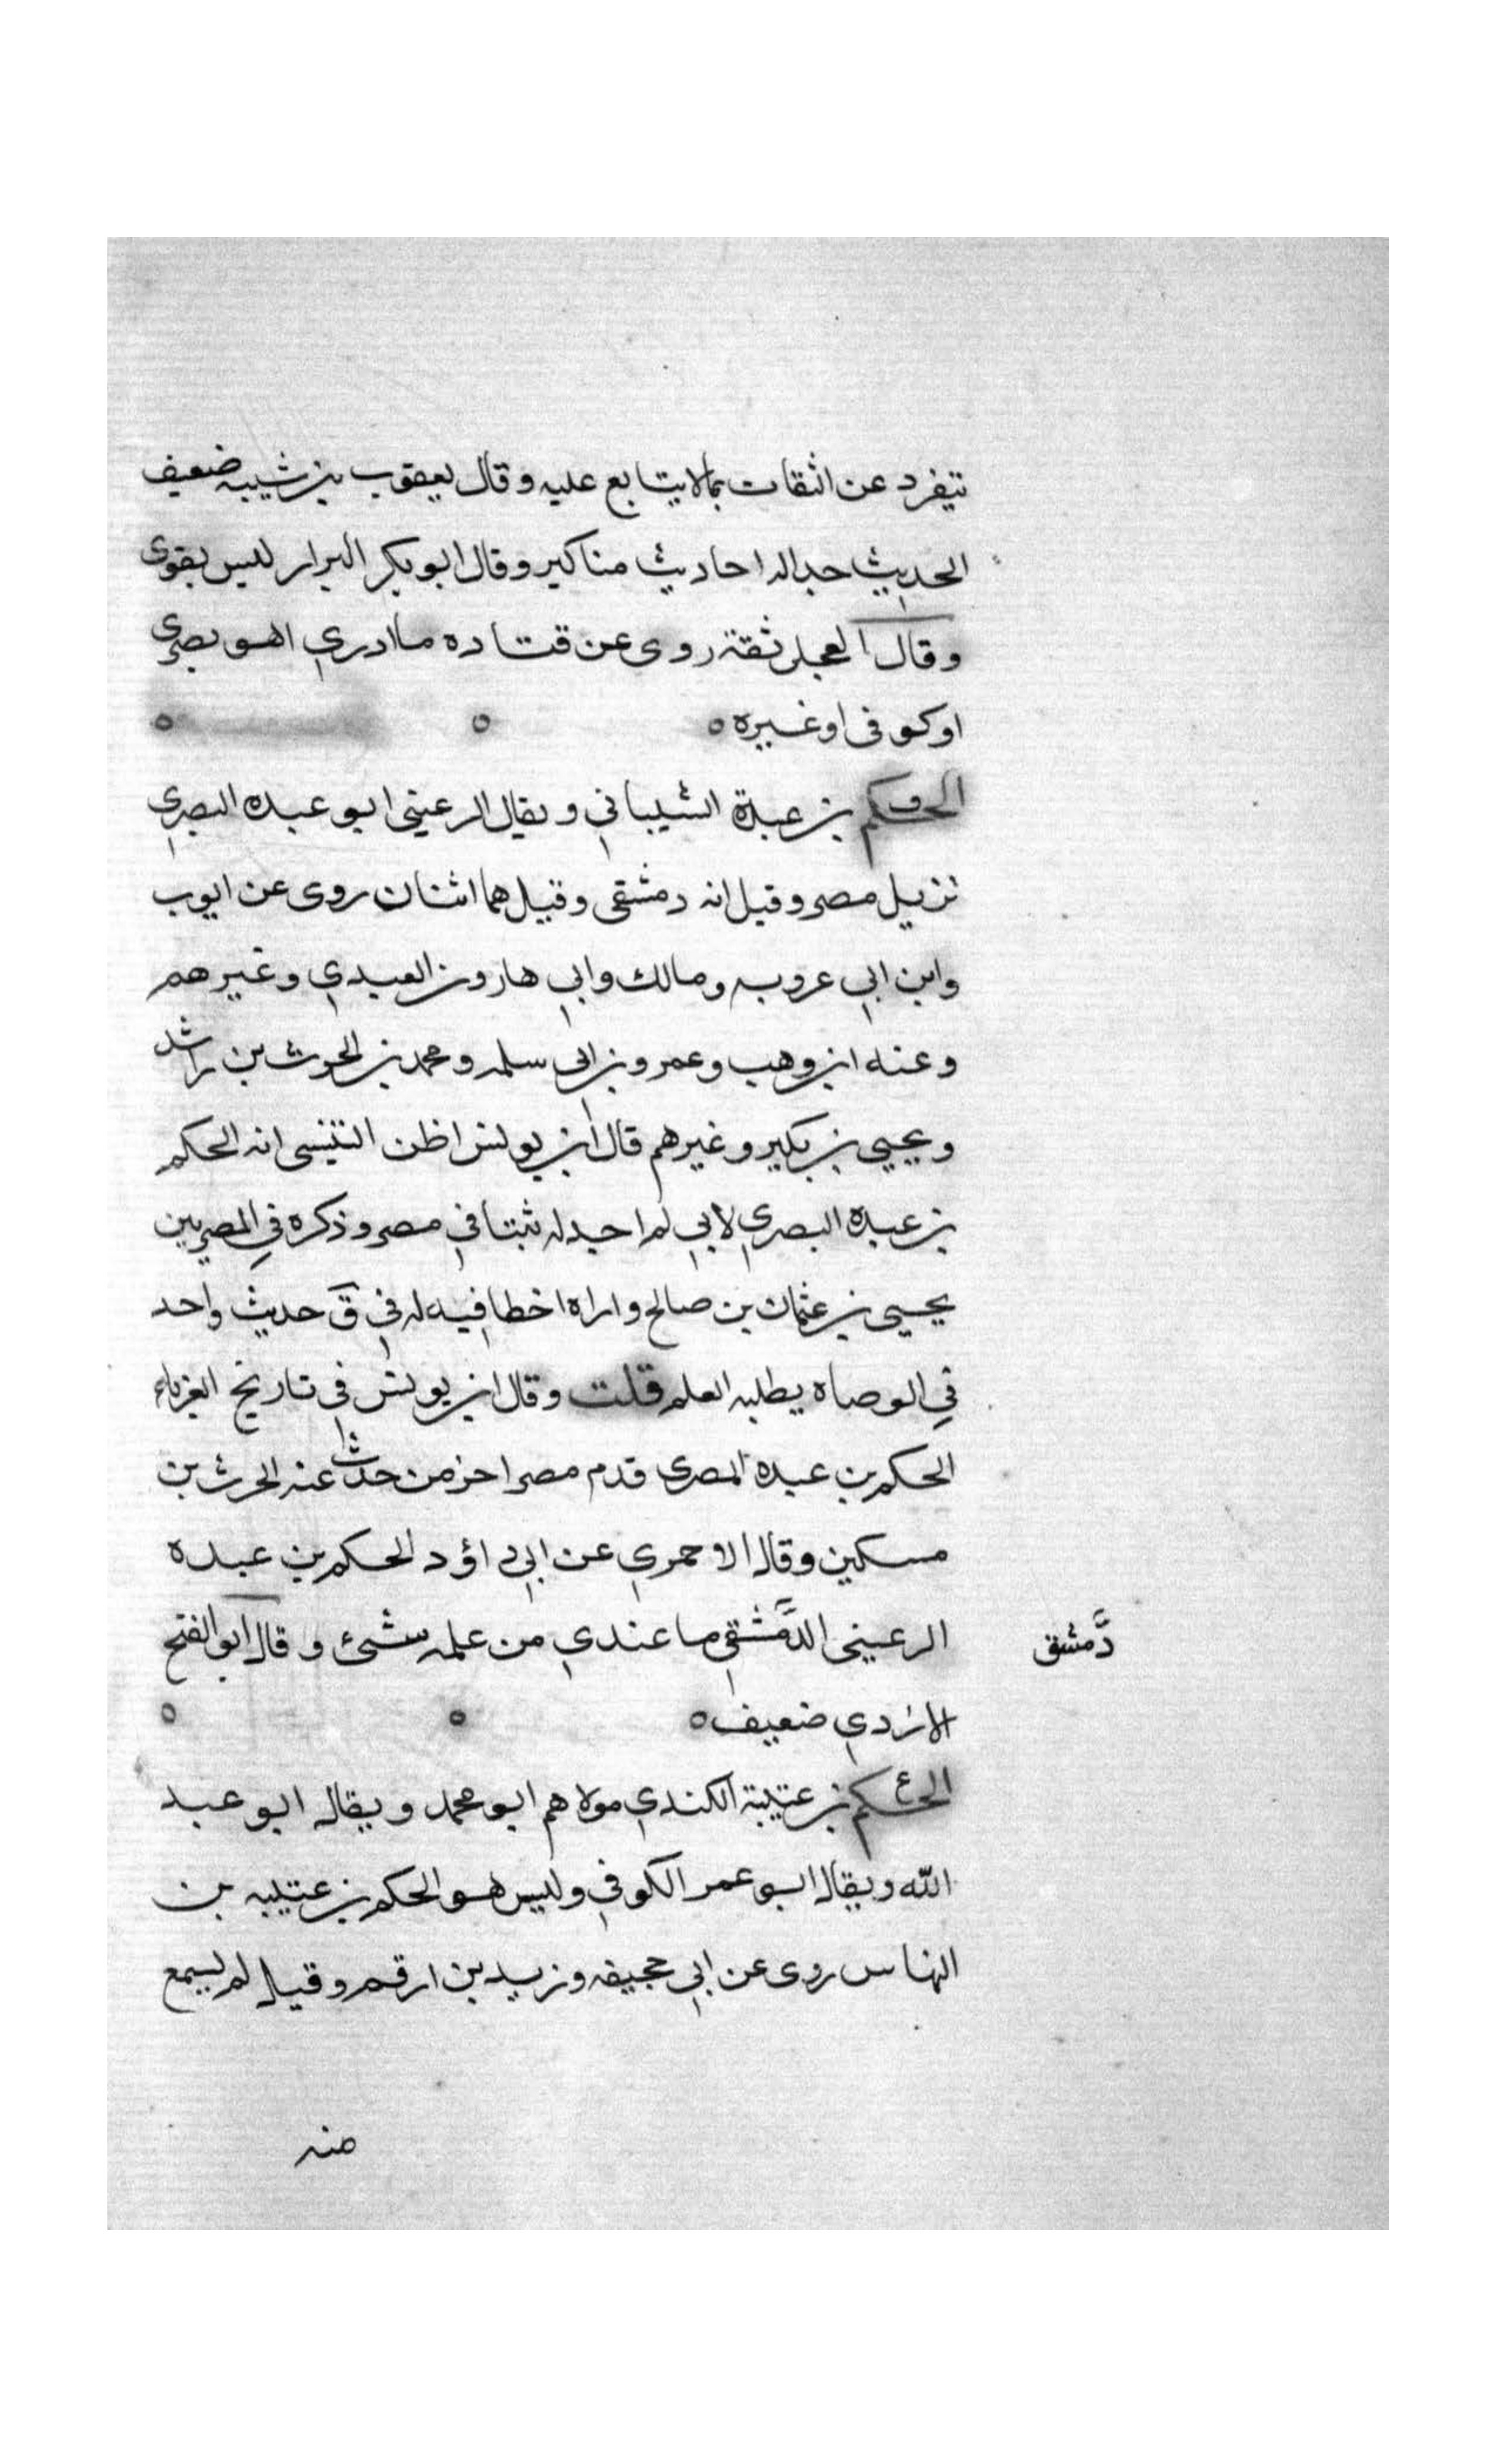 يتفرد عن الثقات بما لا يتابع عليه وقال يعقوب بن شيبه ضعيف
الحديث جدا له احاديث مناكير وقال ابو بكر البزار ليس بقوى
وقال العجلى ثقة روى عن قتاده ما ادري اهو بصري
او كوفى او غيره ه ه ه
الحكم بن عبدة الشيباني ويقال الرعينى ابو عبده البصري
نزيل مصر وقيل انه دمشقى وقيل هما اثنان روى عن ايوب
وابن ابي عروبه ومالك وابي هارون العبدي وغيرهم
وعنه ابن وهب وعمرو بن ابى سلمه ومحمد بن الحرث بن راشد
ويحيى بن بكير وغيرهم قال ابن يونس اظن التنيسى انه الحكم
بن عبده البصري لاني لم اجد له ثبتا في مصر وذكره في المصريين
يحيى بن عثمان بن صالح واراه اخطا فيه له في ق حديث واحد
في الوصاه بطلبه العلم قلت وقال ابن يونس فى تاريخ الغرباء
الحكم بن عبده المصرى قدم مصر اخر من حدث عنه الحرث بن
مسكين وقال الاجري عن ابي داؤد الحكم بن عبده
الرعينى الدَّمشقي ما عندي من علمه شئ وقال ابو الفتح
دَّمشق
الازدي ضعيف ه ه ه
الحكم بن عتيبة الكندي مولاهم ابو محمد ويقال ابو عبد
الله ويقال ابو عمر الكوفي وليس هو الحكم بن عتيبه بن
النهاس روى عن ابي جحيفه وزيد بن ارقم وقيل لم يسمع
منه